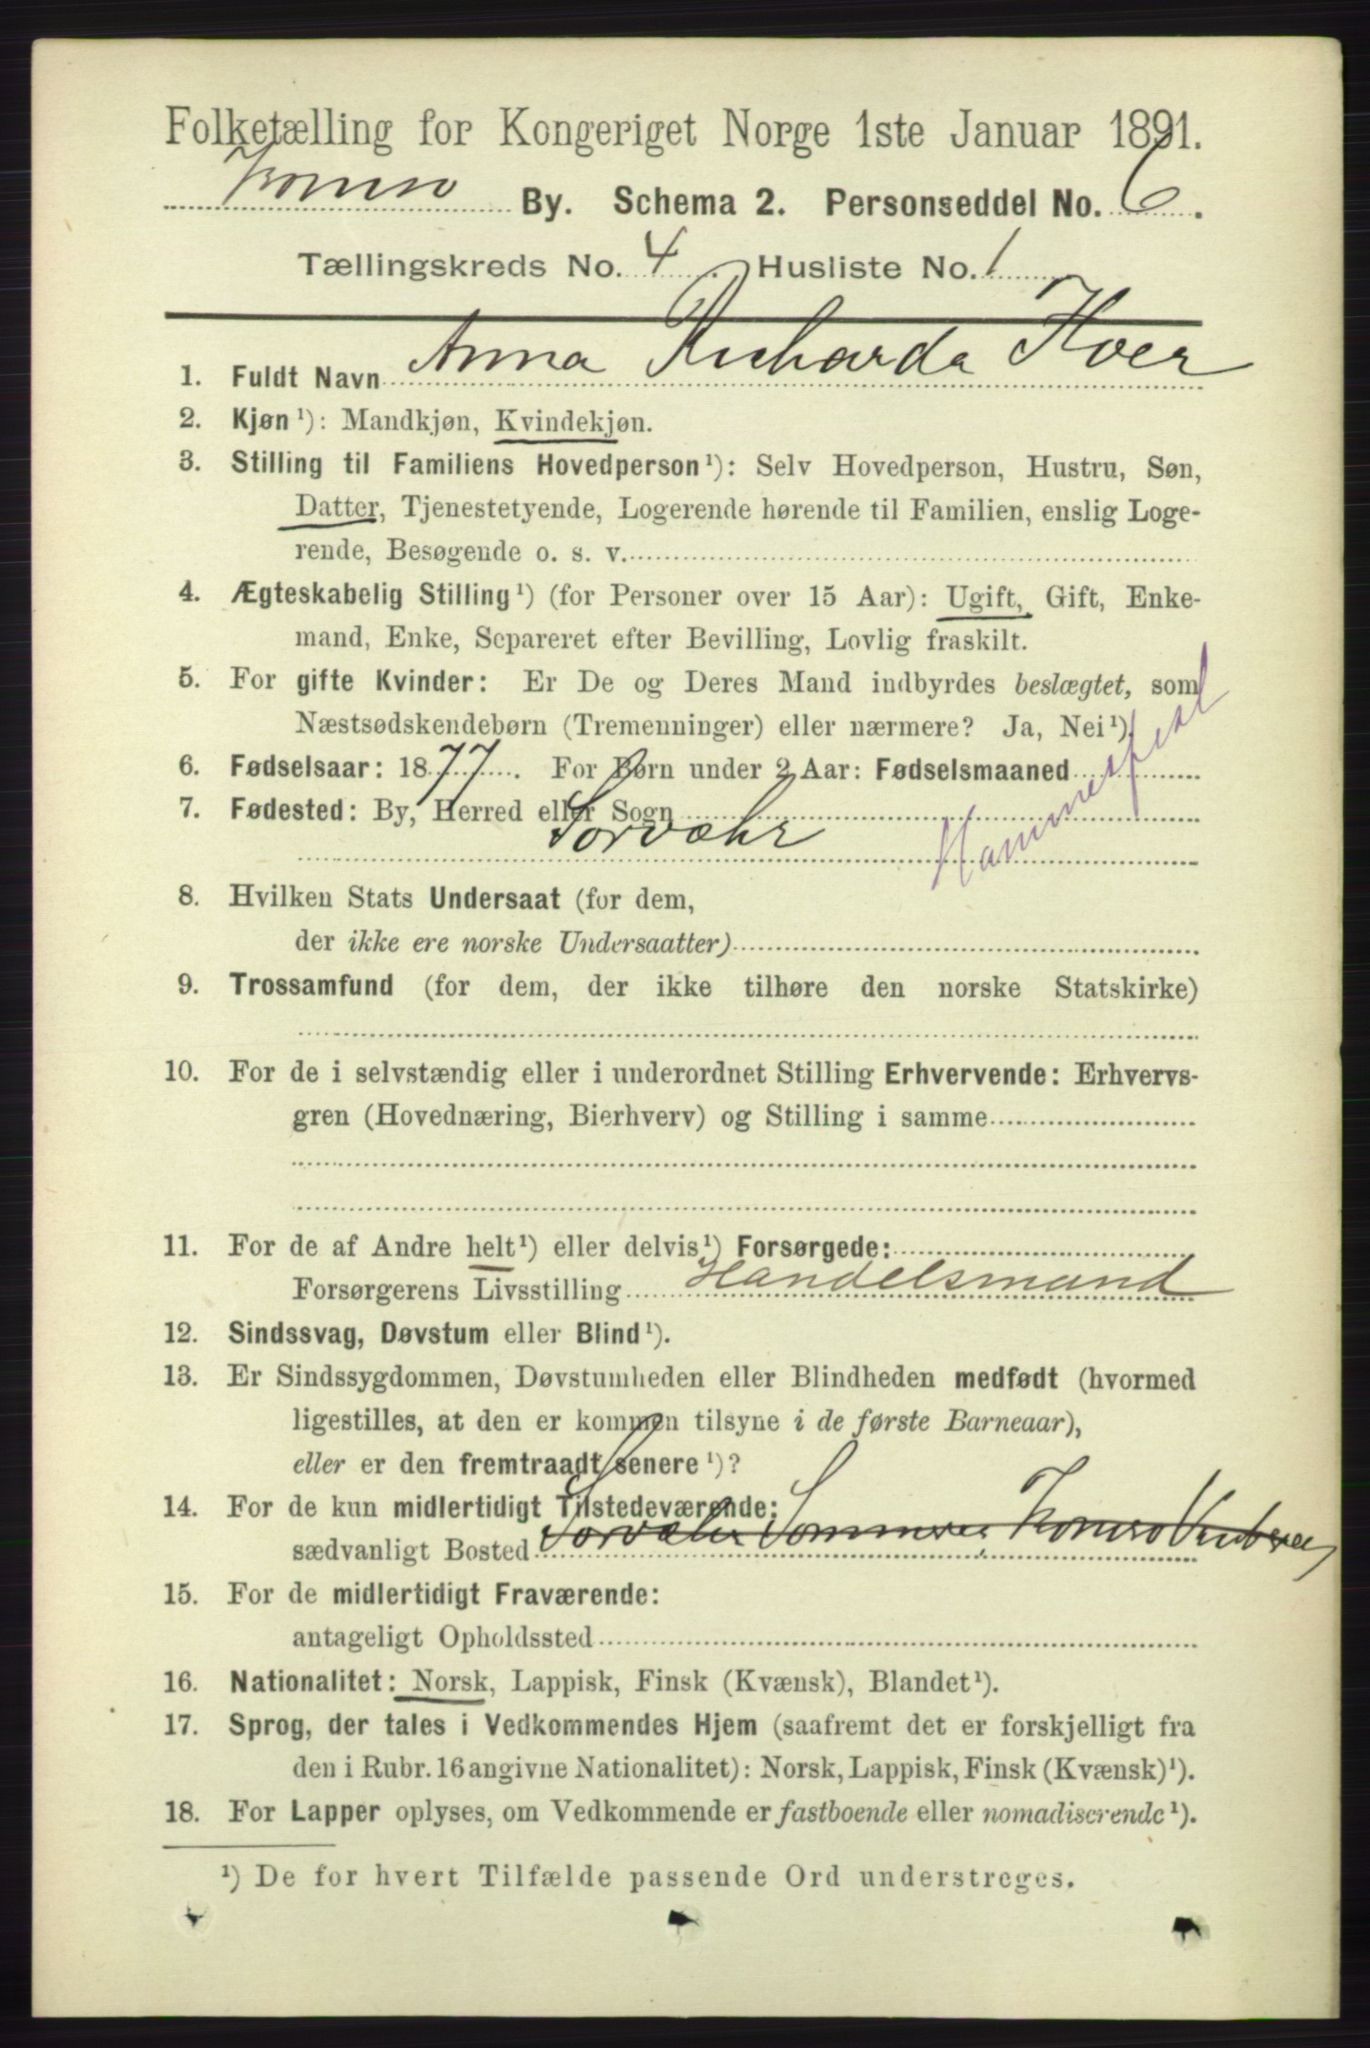 Folketælling for Kongeriget Norge 1ste Januar 1891.
Tromsø By. Schema 2. Personseddel No. 6.
Tællingskreds No. 4. Husliste No. 1
1. Fuldt Navn Anna Richarda Hver
2. Kjøn¹): Mandkjøn, Kvindekjøn.
3. Stilling til Familiens Hovedperson¹): Selv Hovedperson, Hustru, Søn,
Datter, Tjenestetyende, Logerende hørende til Familien, enslig Loge-
rende, Besøgende o. s. v.
4. Ægteskabelig Stilling¹) (for Personer over 15 Aar): Ugift, Gift, Enke-
mand, Enke, Separeret efter Bevilling, Lovlig fraskilt.
5. For gifte Kvinder: Er De og Deres Mand indbyrdes beslægtet, som
Næstsødskendebørn (Tremenninger) eller nærmere? Ja, Nei¹).
6. Fødselsaar: 1877. For Børn under 2 Aar: Fødselsmaaned
7. Fødested: By, Herred eller Sogn
Sorvær Hammerfest
8. Hvilken Stats Undersaat (for dem,
der ikke ere norske Undersaatter)
9. Trossamfund (for dem, der ikke tilhøre den norske Statskirke)
10. For de i selvstændig eller i underordnet Stilling Erhvervende: Erhvervs-
gren (Hovednæring, Bierhverv) og Stilling i samme
11. For de af Andre helt¹) eller delvis¹) Forsørgede:
Forsørgerens Livsstilling Handelsmand
12. Sindssvag, Døvstum eller Blind¹).
13. Er Sindssygdommen, Døvstumheden eller Blindheden medfødt (hvormed
ligestilles, at den er kommen tilsyne i de første Barneaar),
eller er den fremtraadt senere¹)?
14. For de kun midlertidigt Tilstedeværende:
sædvanligt Bosted Sorvær Sommeren, Tromsø Vinteren
15. For de midlertidigt Fraværende:
antageligt Opholdssted
16. Nationalitet: Norsk, Lappisk, Finsk (Kvænsk), Blandet¹).
17. Sprog, der tales i Vedkommendes Hjem (saafremt det er forskjelligt fra
den i Rubr. 16 angivne Nationalitet): Norsk, Lappisk, Finsk (Kvænsk)¹).
18. For Lapper oplyses, om Vedkommende er fastboende eller nomadiserende¹).
¹) De for hvert Tilfælde passende Ord understreges.